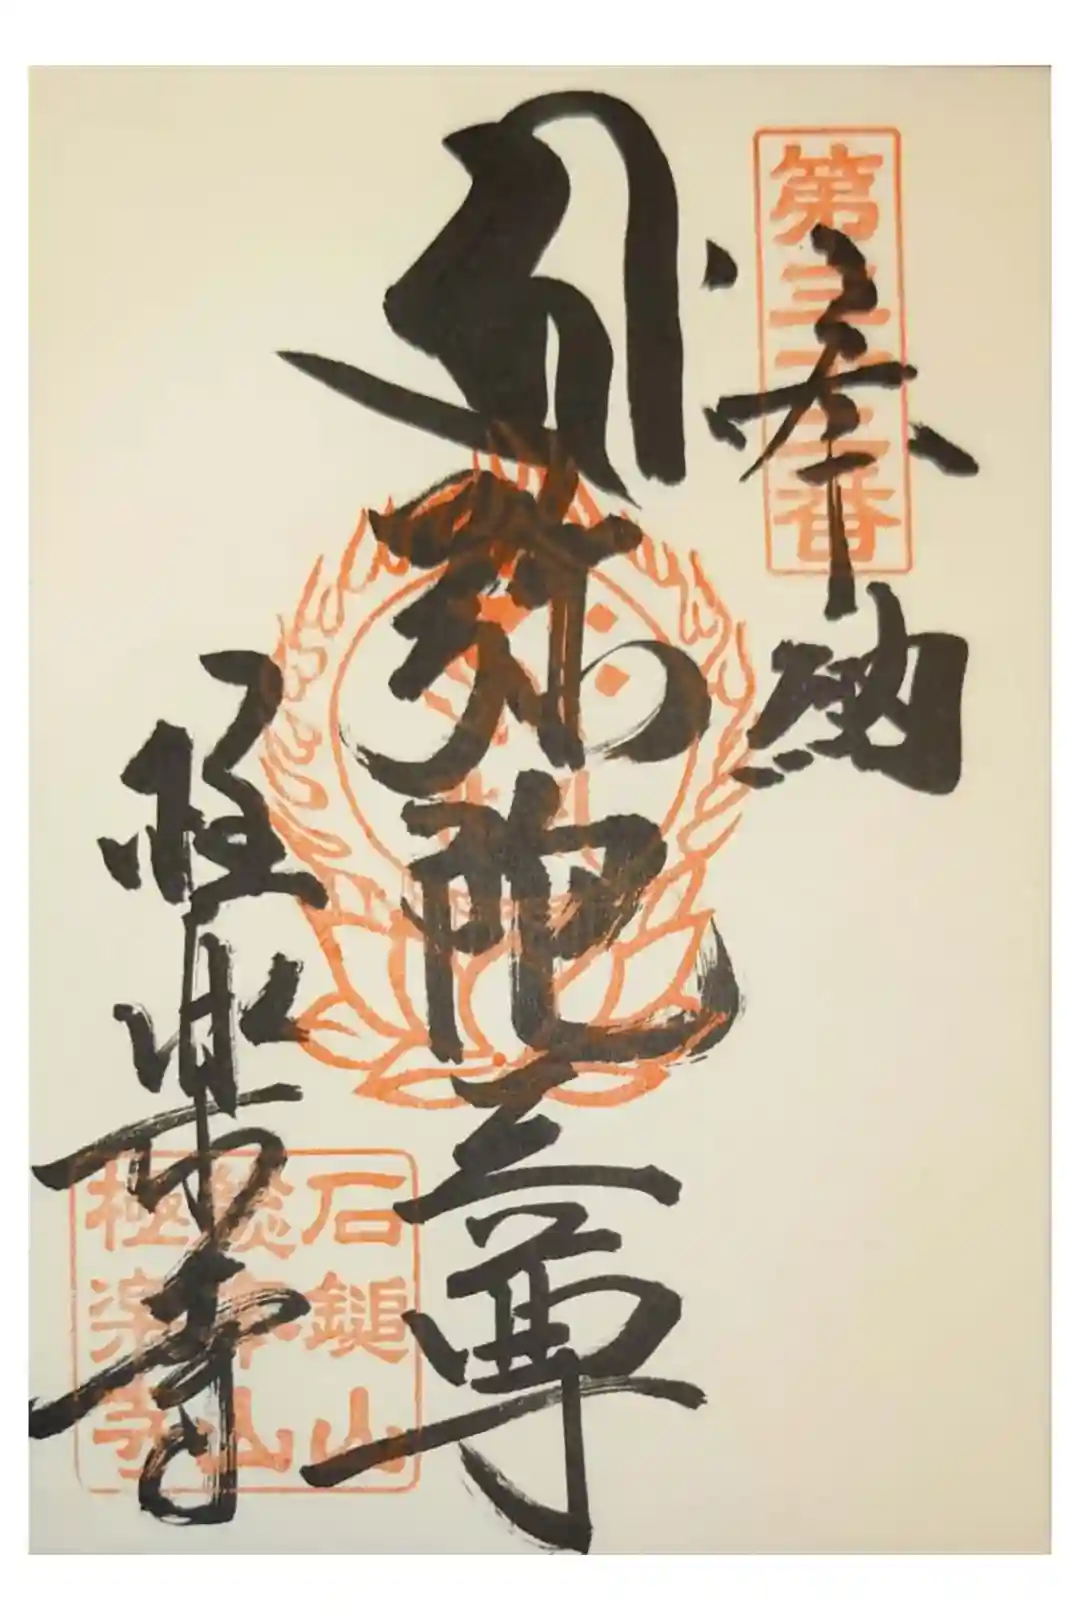 第
番
奉納
弥陀三尊
極楽寺
石鎚山
総本山
極楽寺